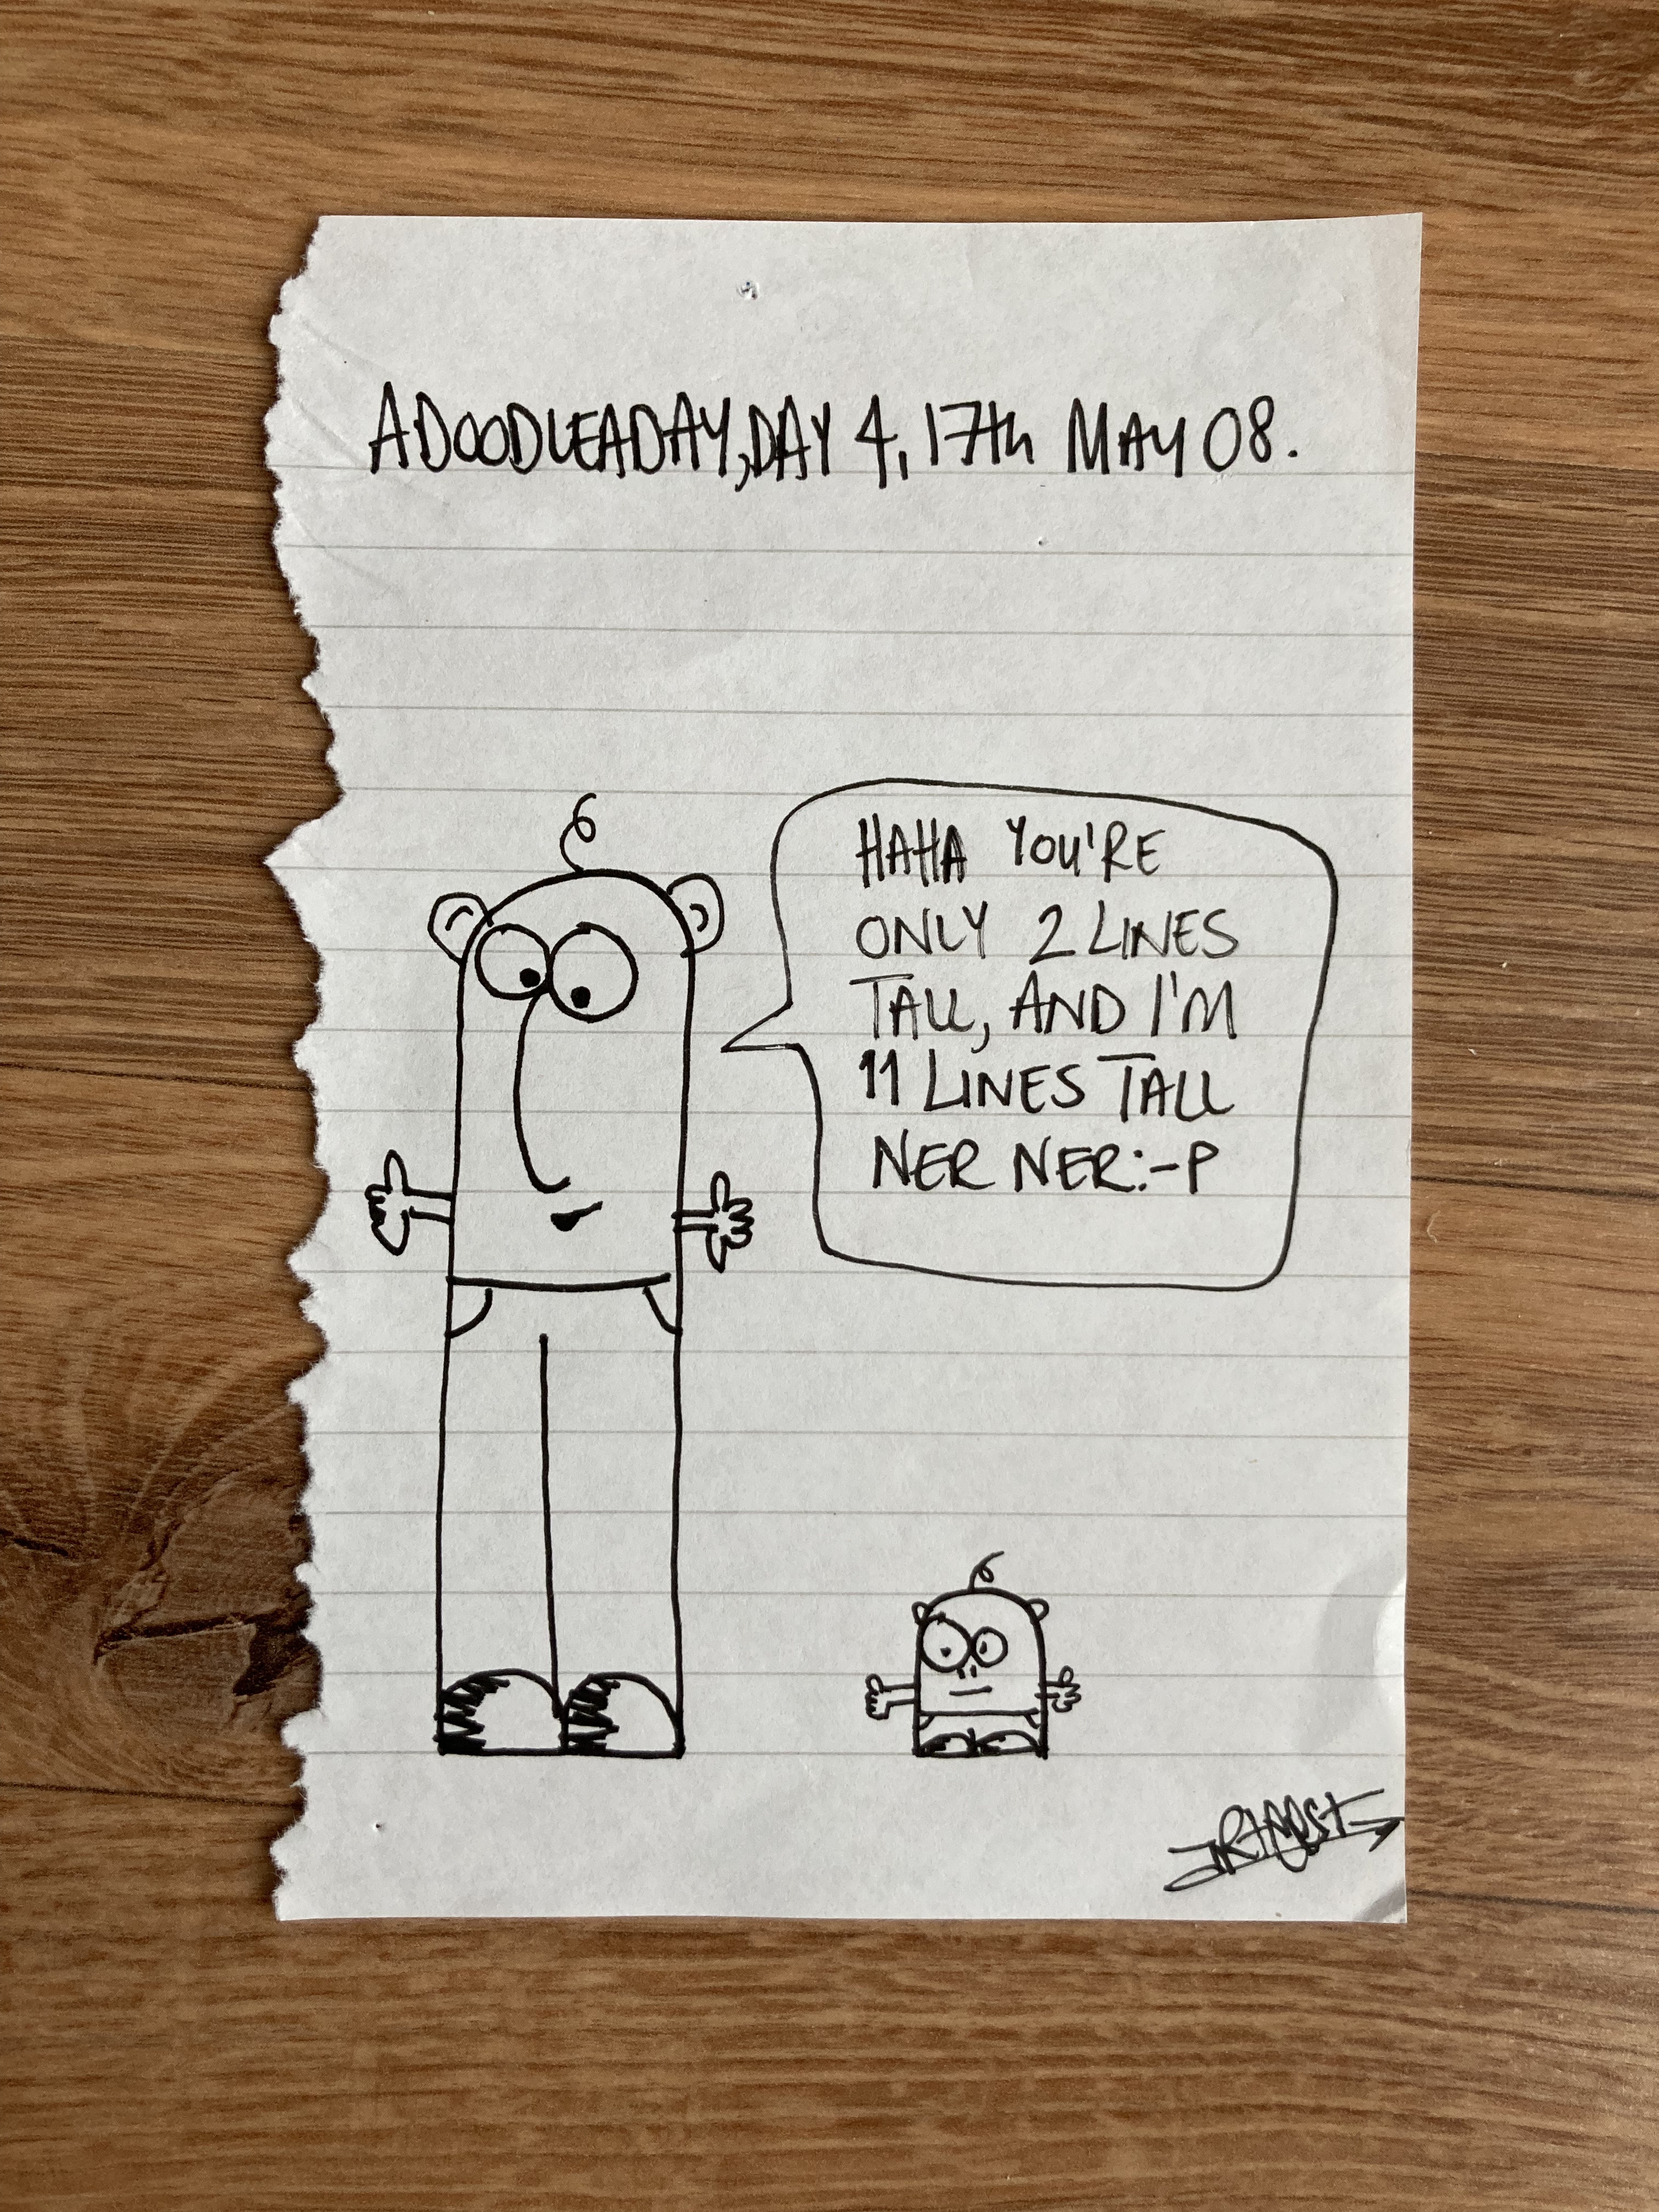 ADOODLEADAY, DAY 4, 17th MAY 08.
HAHA YOU'RE
ONLY 2 LINES
TALL, AND I'M
11 LINES TALL
NER NER:-P